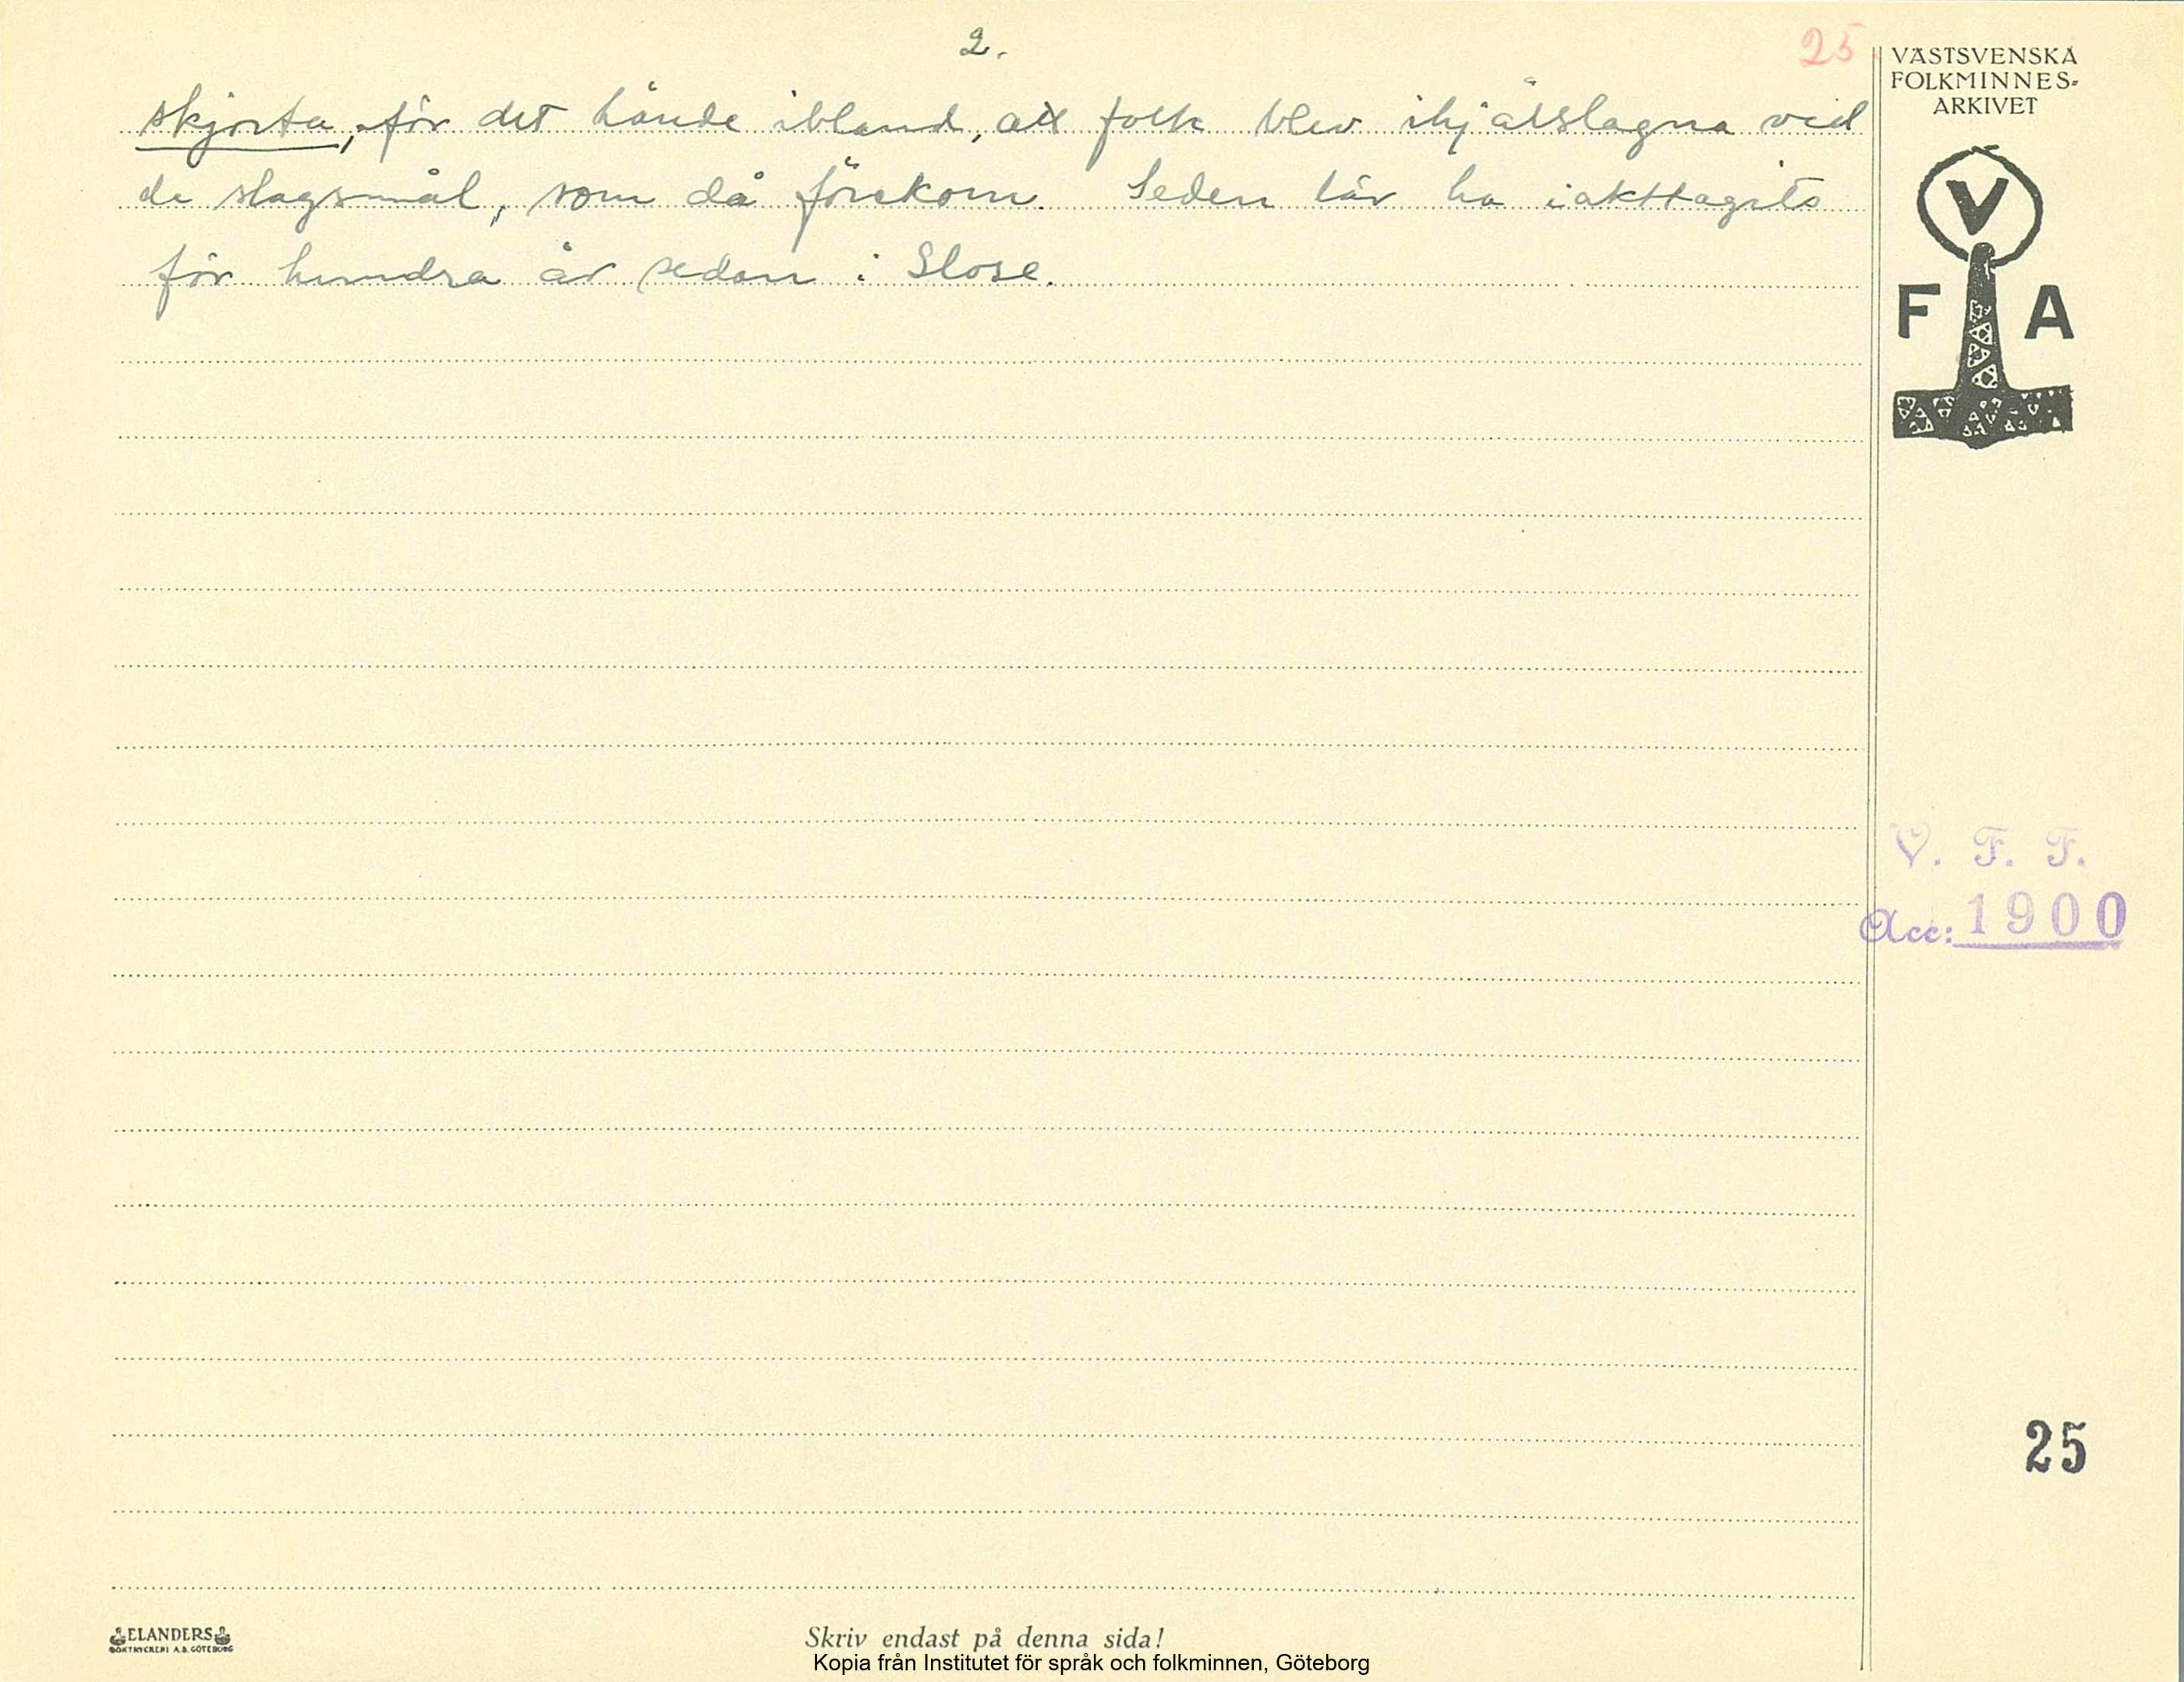 2.
25
VÄSTSVENSKA
FOLKMINNES-
ARKIVET
skjorta, för det hände ibland, att folk blev ihjälslagna vid
de slagsmål, som då förekom. Seden lär ha iakttagits
för hundra år sedan i Slöse.
V
F A
V. F. F.
Acc: 1900
25
ELANDERS
BOKTRYCKERI A.B. GÖTEBORG
Skriv endast på denna sida!
Kopia från Institutet för språk och folkminnen, Göteborg